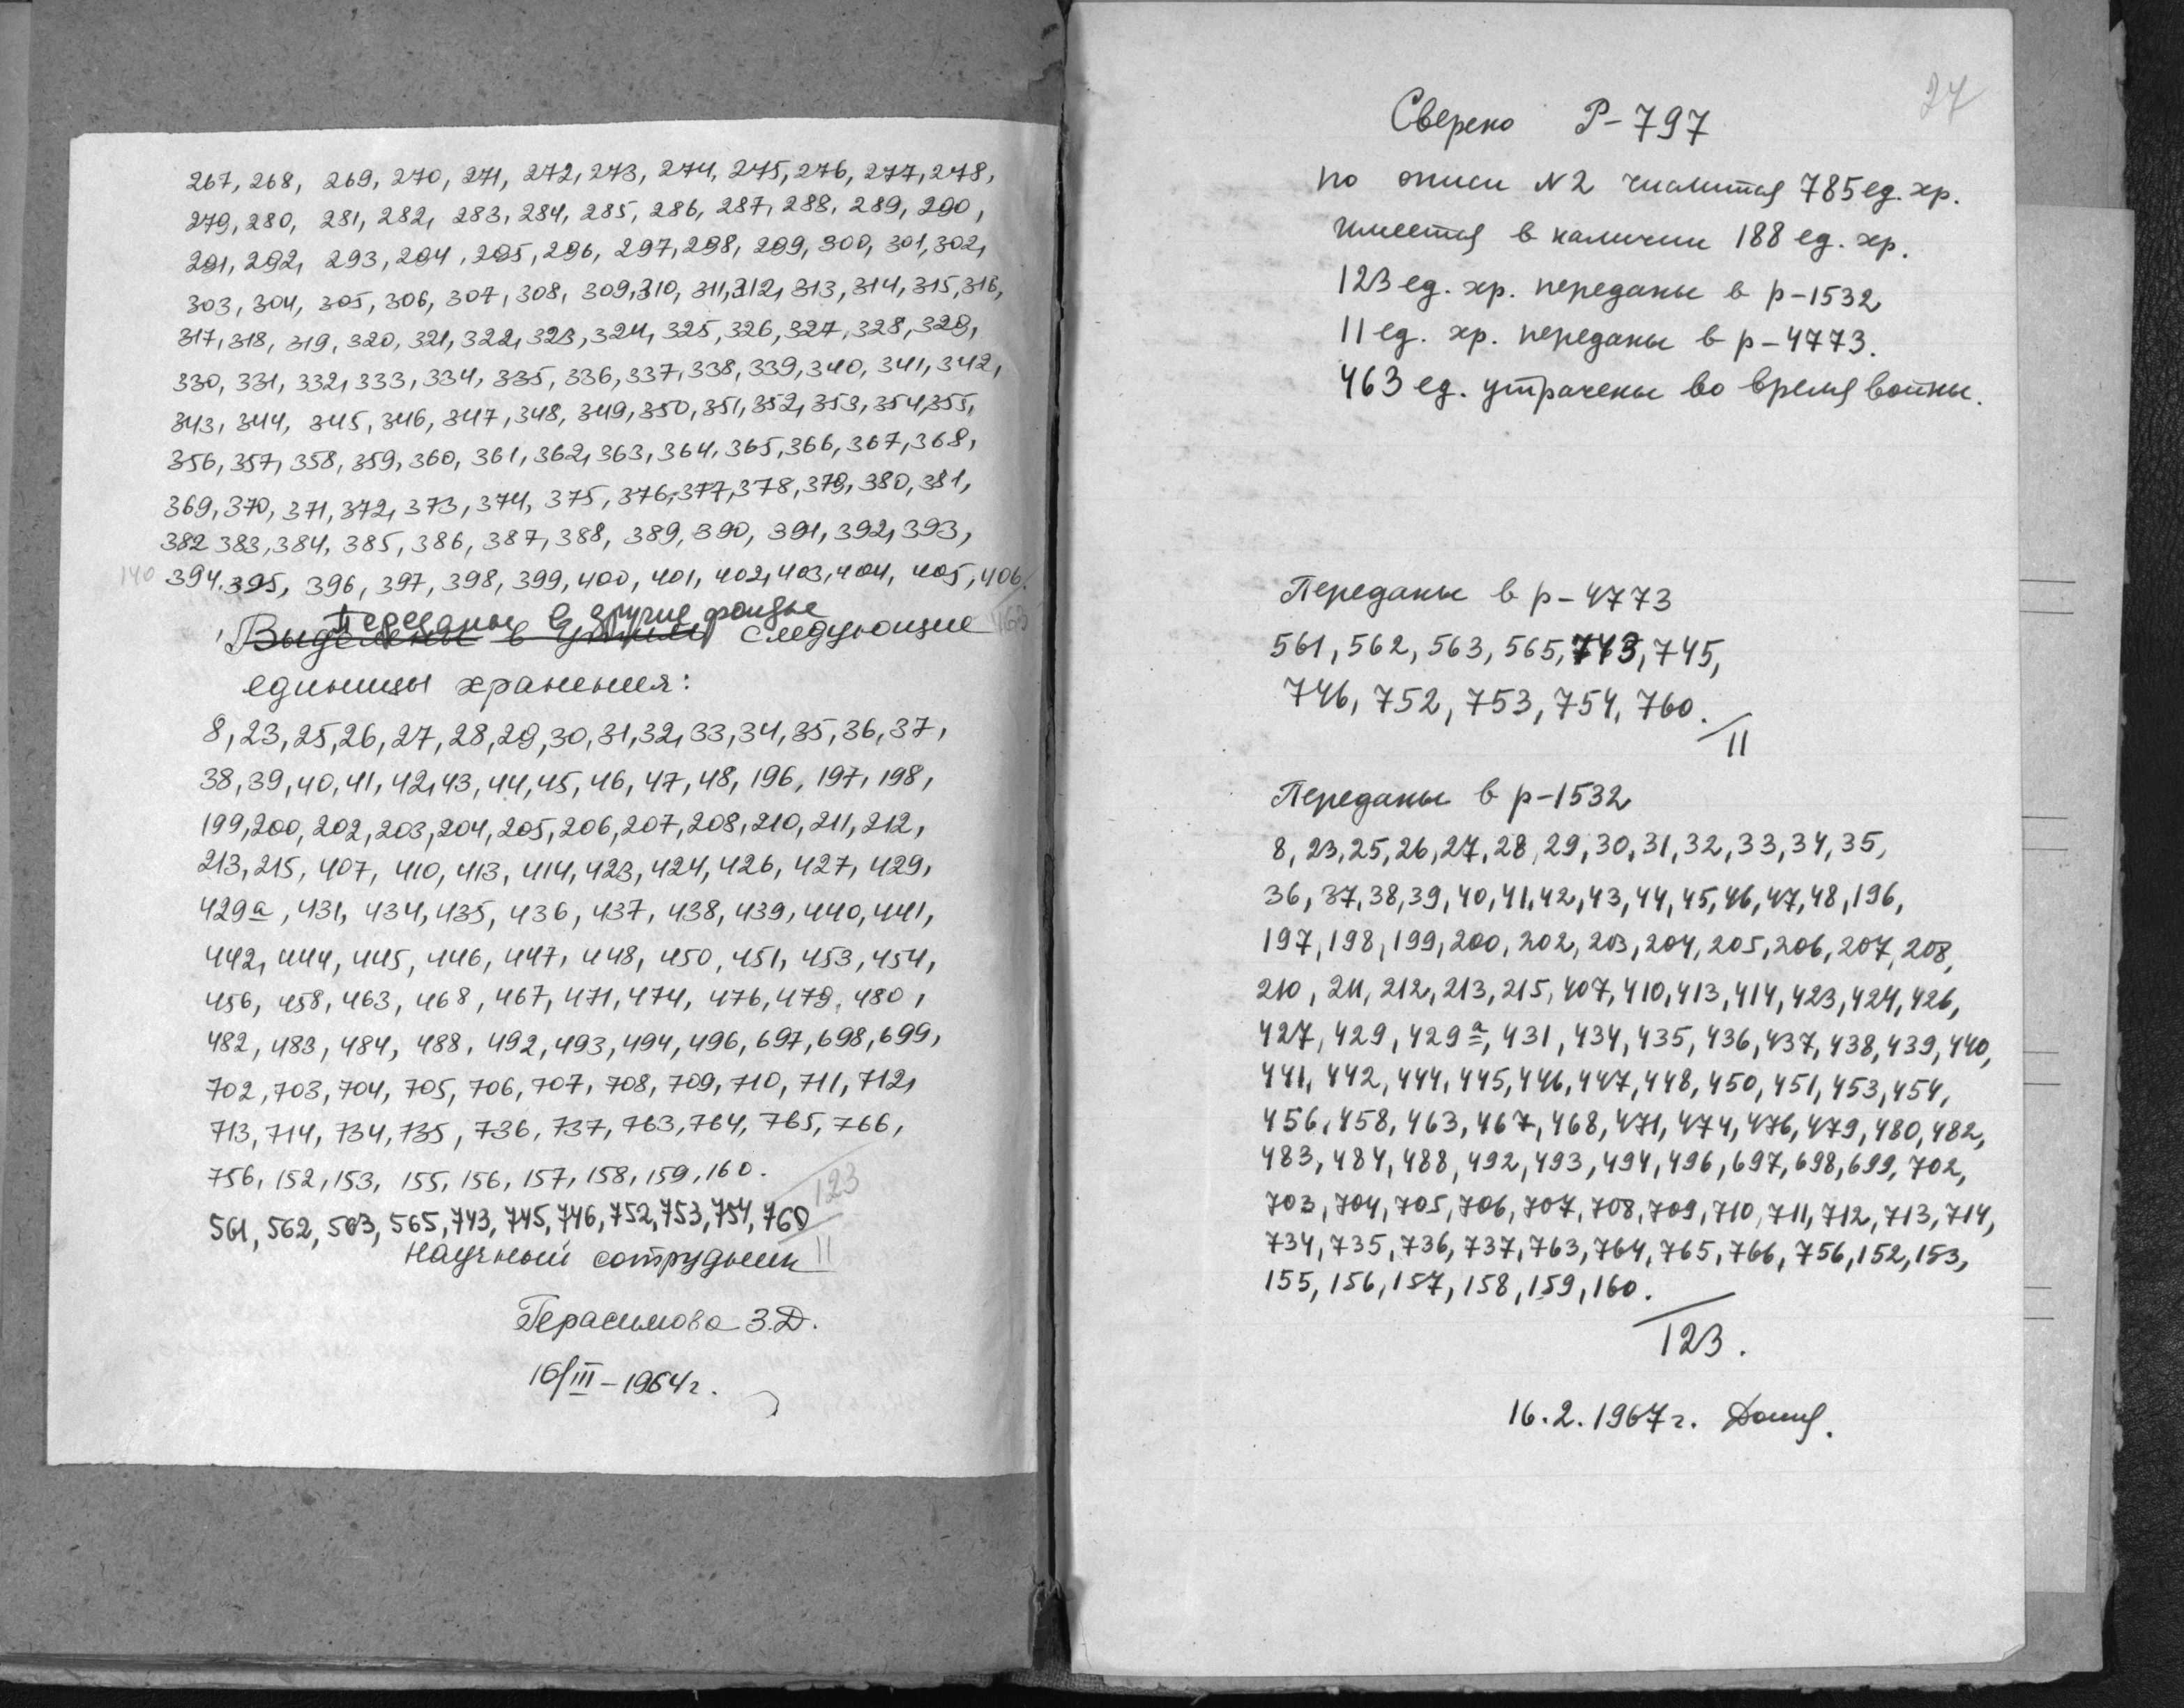 267, 268, 269, 270, 271, 272, 273, 274, 275, 276, 277, 278,
279, 280, 281, 282, 283, 284, 285, 286, 287, 288, 289, 290,
291, 292, 293, 294, 295, 296, 297, 298, 299, 300, 301, 302,
303, 304, 305, 306, 307, 308, 309, 310, 311, 312, 313, 314, 315, 316,
317, 318, 319, 320, 321, 322, 323, 324, 325, 326, 327, 328, 329,
330, 331, 332, 333, 334, 335, 336, 337, 338, 339, 340, 341, 342,
343, 344, 345, 346, 347, 348, 349, 350, 351, 352, 353, 354, 355,
356, 357, 358, 359, 360, 361, 362, 363, 364, 365, 366, 367, 368,
369, 370, 371, 372, 373, 374, 375, 376, 377, 378, 379, 380, 381,
382 383, 384, 385, 386, 387, 388, 389, 390, 391, 392, 393,
140 394, 395, 396, 397, 398, 399, 400, 401, 402, 403, 404, 405, 406.
463
Переданы в другие фонды
Выделены в следующие
единицы хранения:
8, 23, 25, 26, 27, 28, 29, 30, 31, 32, 33, 34, 35, 36, 37,
38, 39, 40, 41, 42, 43, 44, 45, 46, 47, 48, 196, 197, 198,
199, 200, 202, 203, 204, 205, 206, 207, 208, 210, 211, 212,
213, 215, 407, 410, 413, 414, 423, 424, 426, 427, 429,
429а, 431, 434, 435, 436, 437, 438, 439, 440, 441,
442, 444, 445, 446, 447, 448, 450, 451, 453, 454,
456, 458, 463, 468, 467, 471, 474, 476, 479, 480,
482, 483, 484, 488, 492, 493, 494, 496, 697, 698, 699,
702, 703, 704, 705, 706, 707, 708, 709, 710, 711, 712,
713, 714, 734, 735, 736, 737, 763, 764, 765, 766,
756, 152, 153, 155, 156, 157, 158, 159, 160.
123
561, 562, 563, 565, 743, 745, 746, 752, 753, 754, 760
11
Научный сотрудник
Герасимова З.Д.
16/III – 1964 г.
24
Сверено Р-797
по описи №2 числится 785 ед. хр.
имеется в наличии 188 ед. хр.
123 ед. хр. переданы в р-1532
11 ед. хр. переданы в р-4773.
463 ед. утрачены во время войны.
Переданы в р-4773
561, 562, 563, 565, 743, 745,
746, 752, 753, 754, 760.
11
Переданы в р-1532
8, 23, 25, 26, 27, 28, 29, 30, 31, 32, 33, 34, 35,
36, 37, 38, 39, 40, 41, 42, 43, 44, 45, 46, 47, 48, 196,
197, 198, 199, 200, 202, 203, 204, 205, 206, 207, 208,
210, 211, 212, 213, 215, 407, 410, 413, 414, 423, 424, 426,
427, 429, 429а, 431, 434, 435, 436, 437, 438, 439, 440,
441, 442, 444, 445, 446, 447, 448, 450, 451, 453, 454,
456, 458, 463, 467, 468, 471, 474, 476, 479, 480, 482,
483, 484, 488, 492, 493, 494, 496, 697, 698, 699, 702,
703, 704, 705, 706, 707, 708, 709, 710, 711, 712, 713, 714,
734, 735, 736, 737, 763, 764, 765, 766, 756, 152, 153,
155, 156, 157, 158, 159, 160.
123.
16.2.1967 г.